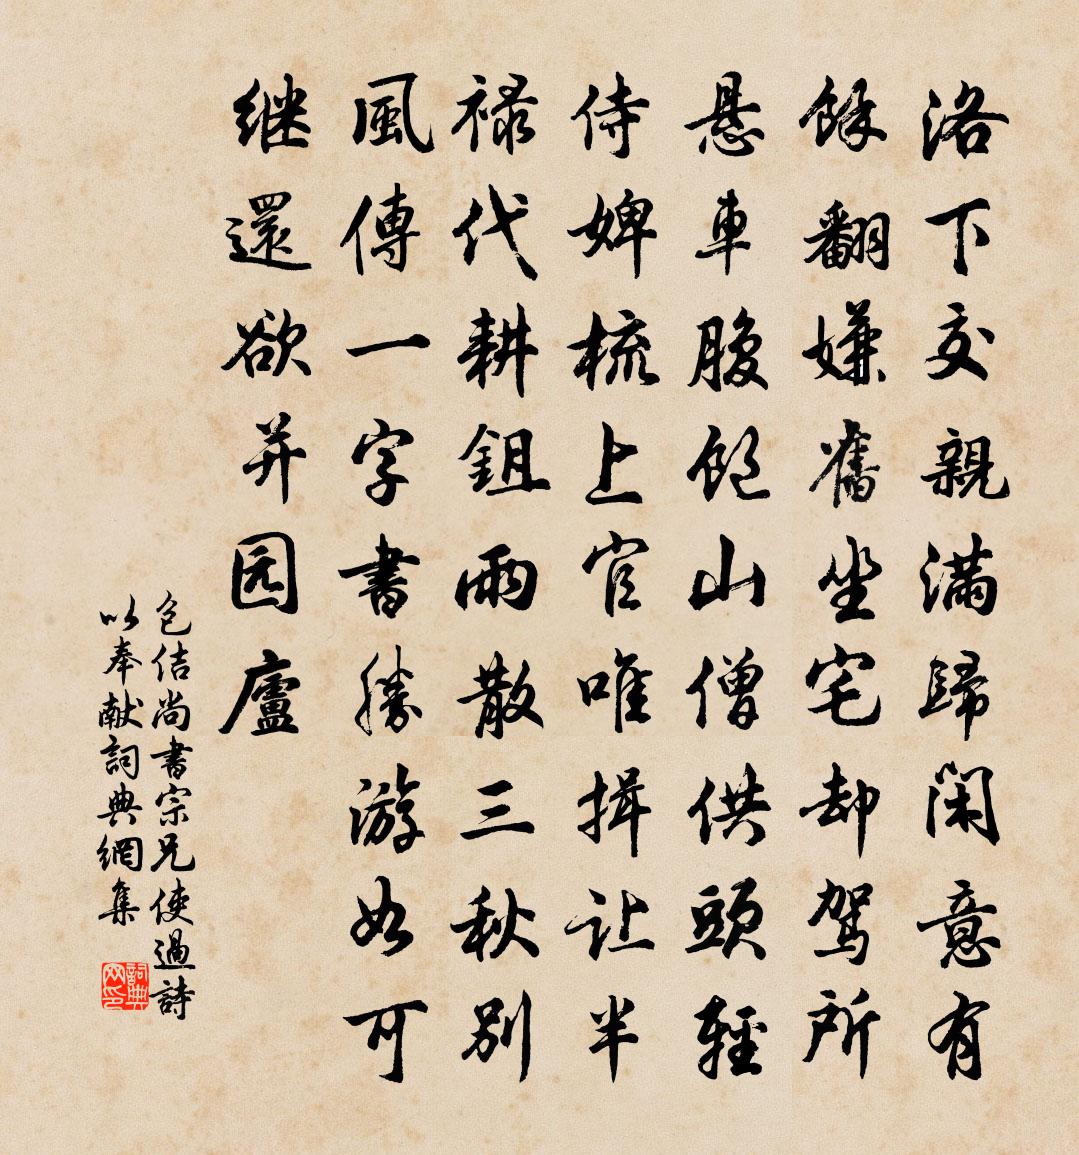 洛下交親滿歸闲意有
餘翻嫌舊坐宅却駕所
悬車腹飽山僧供頭輕
侍婢梳上官唯揖让半
禄代耕鉏雨散三秋别
風傳一字書勝游如可
继還欲并园廬
色佶尚書宗兄使過詩
以奉献詞典網集
詞典网印